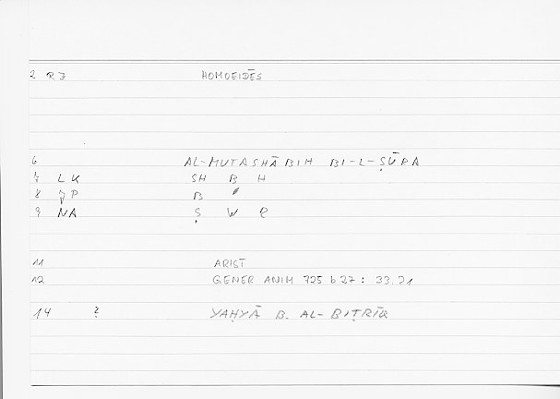 2 RJ HOMOEIDĒS
6 AL-MUTASHĀBIH BI-L-ṢŪRA
7 LK SH B H
8 JP B
9 NA Ṣ W R
11 ARIST
12 GENER ANIM 725 b 27 : 33.21
14 ? YAḤYĀ B. AL-BIṬRĪQ